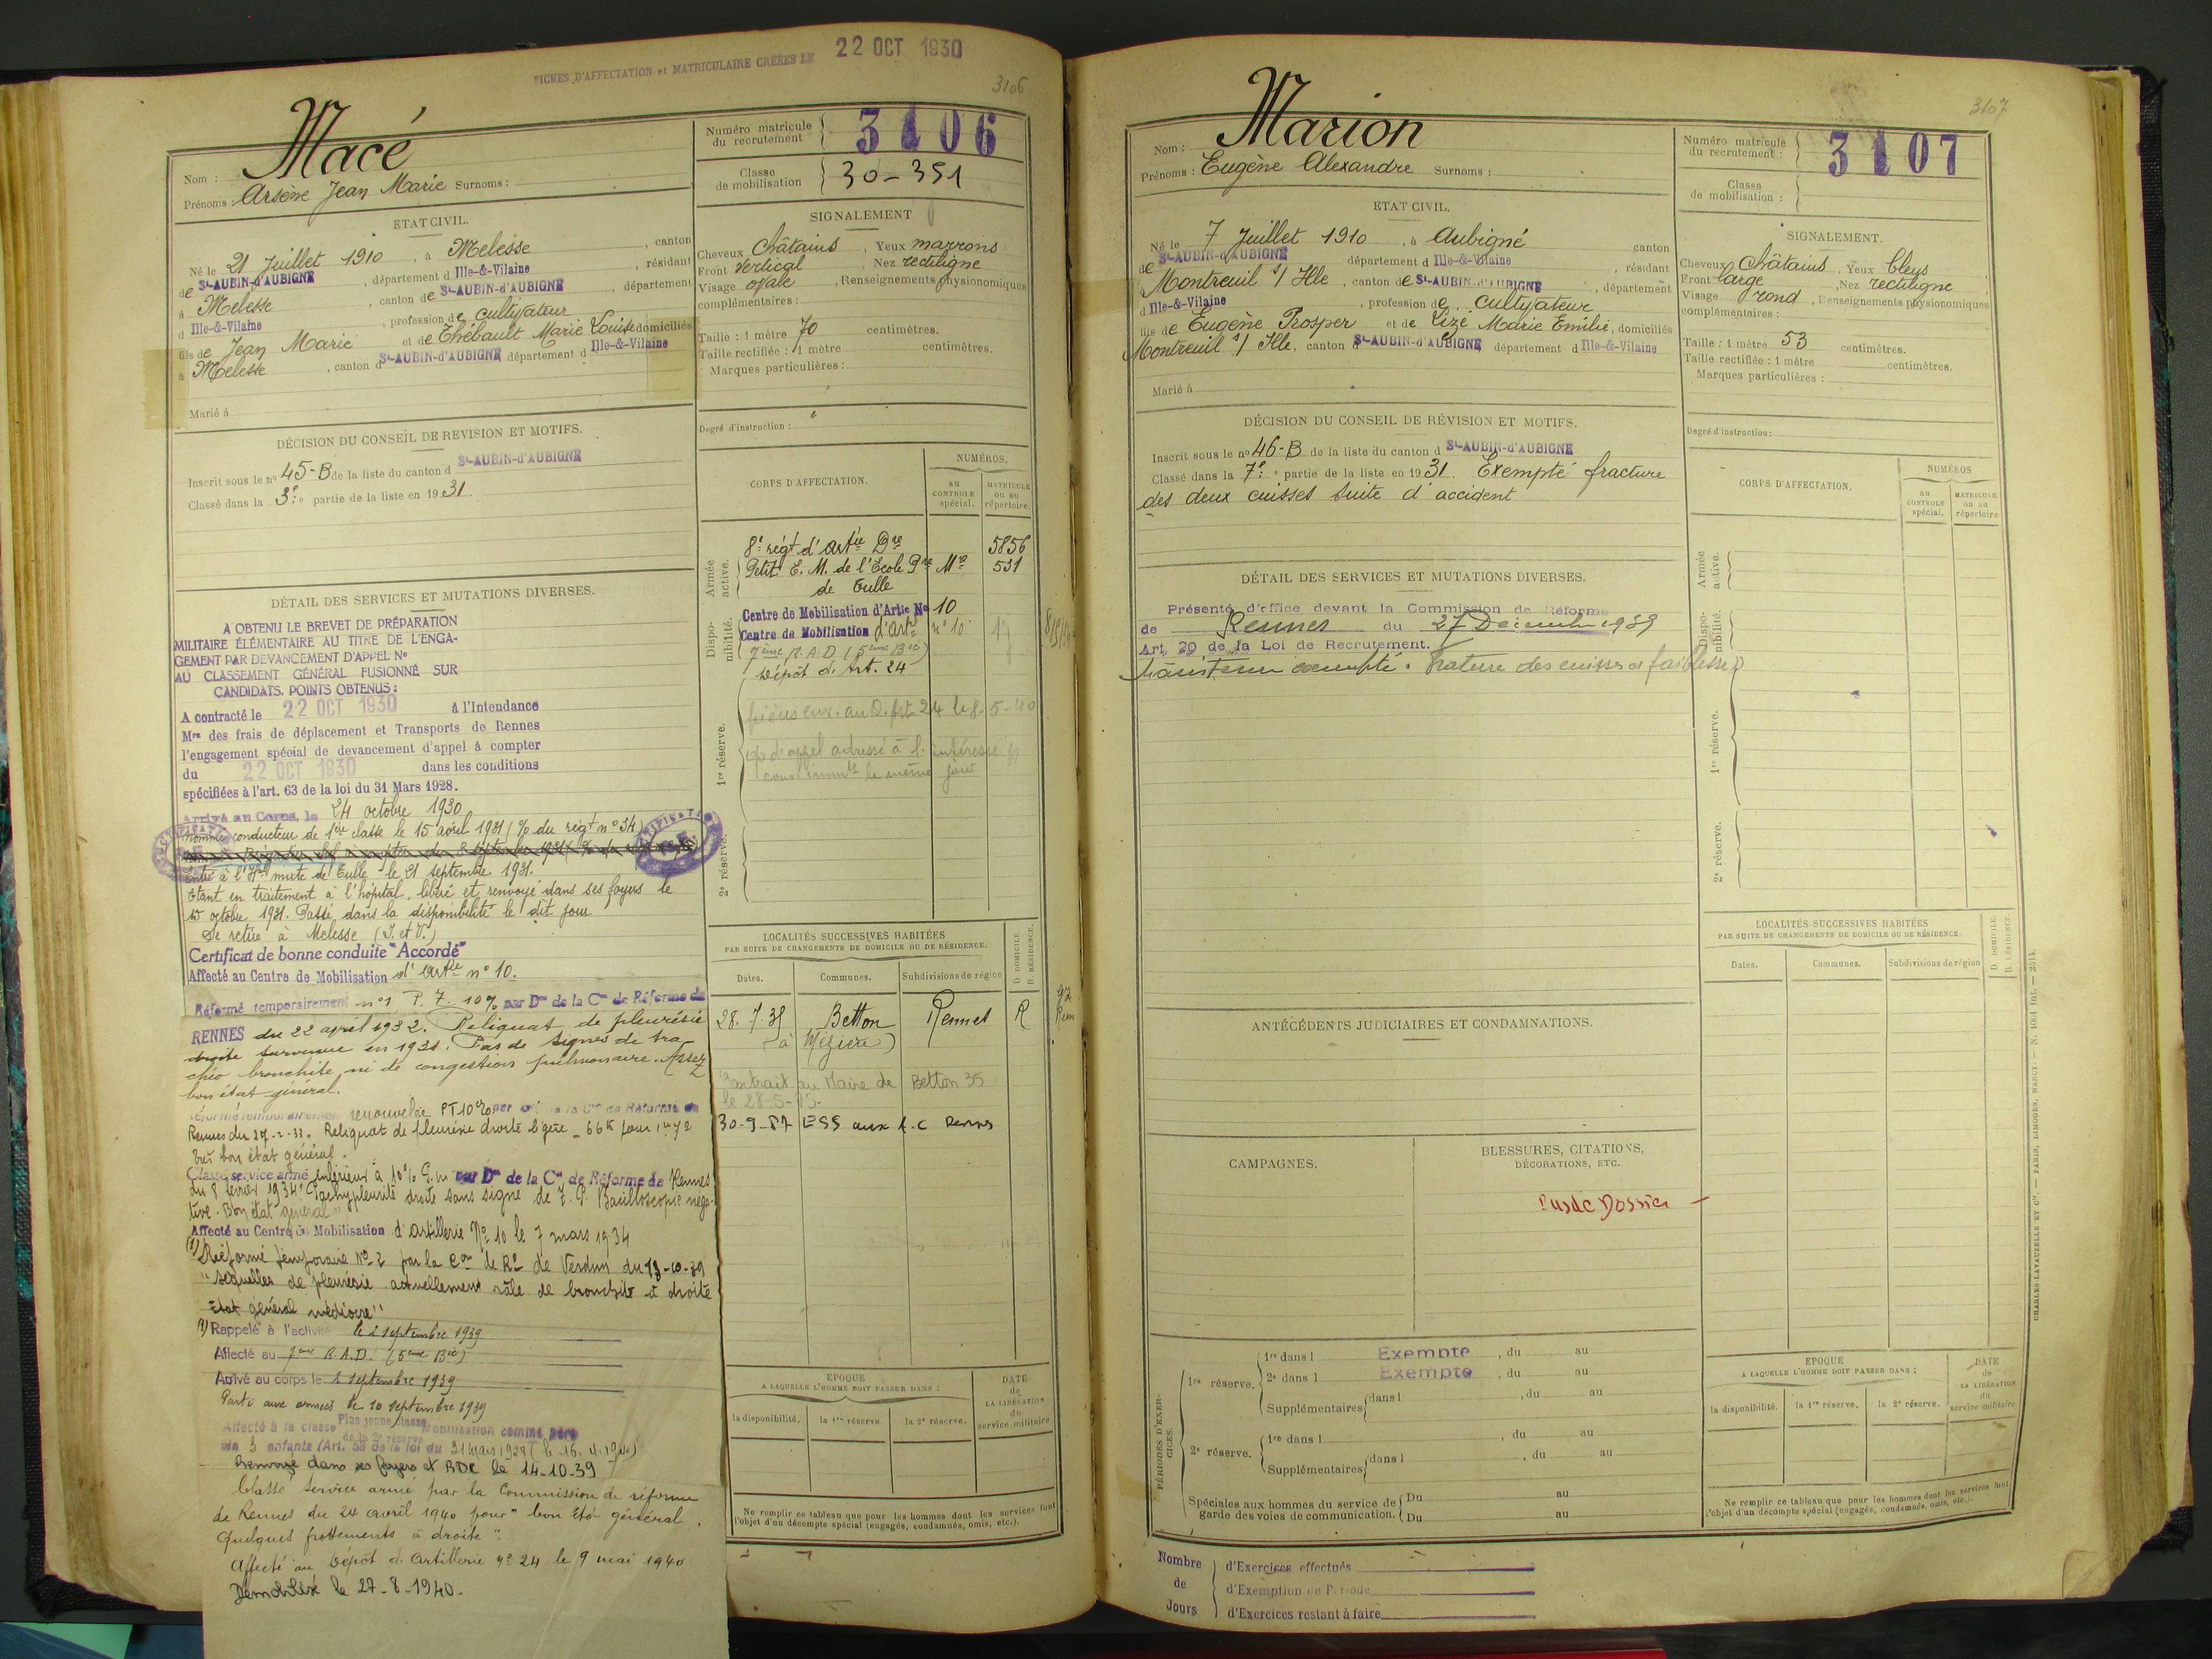 FICHES D'AFFECTATION et MATRICULAIRE CRÉÉES LE 22 OCT 1930
3106
Nom : Macé
Prénoms : Arsène Jean Marie Surnoms :
Numéro matricule du recrutement 3106
Classe de mobilisation 30-351
ETAT CIVIL.
Né le 21 Juillet 1910, à Melesse, canton
de St-AUBIN-d'AUBIGNE, département d Ille-&-Vilaine, résidant
à Melesse, canton de St-AUBIN-d'AUBIGNE, département
d Ille-&-Vilaine, profession de cultivateur
fils de Jean Marie et de Thébault Marie Louise domiciliés
à Melesse, canton d St-AUBIN-d'AUBIGNE département d Ille-&-Vilaine
Marié à
SIGNALEMENT
Cheveux Châtains, Yeux marrons
Front Vertical, Nez rectiligne
Visage ovale, Renseignements physionomiques
complémentaires :
Taille : 1 mètre 70 centimètres.
Taille rectifiée : 1 mètre centimètres.
Marques particulières :
Degré d'instruction :
DÉCISION DU CONSEIL DE REVISION ET MOTIFS.
Inscrit sous le no 45-B de la liste du canton d St-AUBIN-d'AUBIGNE
Classé dans la 3e partie de la liste en 1931.
DÉTAIL DES SERVICES ET MUTATIONS DIVERSES.
A OBTENU LE BREVET DE PRÉPARATION
MILITAIRE ÉLÉMENTAIRE AU TITRE DE L'ENGA-
GEMENT PAR DEVANCEMENT D'APPEL No
AU CLASSEMENT GÉNÉRAL FUSIONNÉ SUR
CANDIDATS. POINTS OBTENUS :
A contracté le 22 OCT 1930 à l'Intendance
Mre des frais de déplacement et Transports de Rennes
l'engagement spécial de devancement d'appel à compter
du 22 OCT 1930 dans les conditions
spécifiées à l'art. 63 de la loi du 31 Mars 1928.
Arrivé au Corps, le 24 octobre 1930
Nommé conducteur de 1ère classe le 15 avril 1931 (% du régt no 34)
Entré à l'Hal mixte de Tulle le 21 septembre 1931.
Etant en traitement à l'hôpital, libéré et renvoyé dans ses foyers le
octobre 1931. Passé dans la disponibilité le dit jour
Se retire à Melesse (I. et V.)
Certificat de bonne conduite "Accordé"
Affecté au Centre de Mobilisation d'artie no 10.
Réformé temporairement no 1 P. T. 10% par Don de la Con de Réforme de
RENNES du 22 avril 1932. Reliquat de pleurésie
droite survenue en 1931. Pas de signes de tra-
chéo bronchite, ni de congestion pulmonaire. Assez
bon état général.
renouvelée PT 10% par
Rennes du 27-2-33. Reliquat de pleurésie droite légère - 66k pour 1m72
très bon état général.
Classé service armé inférieur à 10% par Don de la Con de Réforme de Rennes
du 8 février 1934 "Pachypleurite droite sans signe de T. P. Bacilloscopie néga-
tive. Bon état général"
Affecté au Centre de Mobilisation d'artillerie No 10 le 7 mars 1934
(2) Réformé temporaire No 2 par la Con de Re de Verdun du 13-10-39
"séquelles de pleurésie actuellement râle de bronchite à droite
Etat général médiocre"
(1) Rappelé à l'activité le 2 septembre 1939
Affecté au 7ème R.A.D. (5ème Bie)
Arrivé au corps le 2 septembre 1939
Parti aux armées le 10 septembre 1939
Affecté à la classe Plus jeune classe Mobilisation comme père
de la 2e réserve
de 3 enfants (Art. 58 de la loi du 31 Mars 1928
Renvoyé dans ses foyers et RDC le 14-10-39
Classé service armé par la Commission de réforme
de Rennes du 24 avril 1940 pour "bon état général.
Quelques frottements à droite".
Affecté au Dépôt d'Artillerie No 24 le 9 mai 1940
Démobilisé le 27-8-1940.
CORPS D'AFFECTATION.
NUMÉROS.
au CONTROLE spécial.
MATRICULE ou au répertoire.
Armée active.
8e régt d'Artie Dre 5856
Petit E. M. de l'Ecole Pre Mre 531
de Tulle
Dispo-nibilité.
Centre de Mobilisation d'Artie No 10
Centre de Mobilisation d'Artie no 10
7ème R.A.D. (5ème Bie)
Dépôt d'Art. 24
1re réserve.
2e réserve.
LOCALITÉS SUCCESSIVES HABITÉES
PAR SUITE DE CHANGEMENTS DE DOMICILE OU DE RÉSIDENCE.
D. DOMICILE R. RÉSIDENCE.
Dates. Communes. Subdivisions de région
28.7.35 Betton Rennes R
(à Mézière)
Betton 35
30-9-57 ESS aux A.C Rennes
EPOQUE
A LAQUELLE L'HOMME DOIT PASSER DANS :
la disponibilité. la 1re réserve. la 2e réserve.
DATE de LA LIBÉRATION du service militaire
Ne remplir ce tableau que pour les hommes dont les services font
l'objet d'un décompte spécial (engagés, condamnés, omis, etc.).
3107
Nom : Marion
Prénoms : Eugène Alexandre Surnoms :
Numéro matricule du recrutement : 3107
Classe de mobilisation :
ETAT CIVIL.
Né le 7 Juillet 1910, à Aubigné canton
de St-AUBIN-d'AUBIGNE département d Ille-&-Vilaine, résidant
à Montreuil s/ Ille, canton de St-AUBIN-d'AUBIGNE, département
d Ille-&-Vilaine, profession de cultivateur
fils de Eugène Prosper et de Lizé Marie Emilie, domiciliés
Montreuil s/ Ille, canton d St-AUBIN-d'AUBIGNE département d Ille-&-Vilaine
Marié à
SIGNALEMENT.
Cheveux Châtains, Yeux bleus
Front large, Nez rectiligne
Visage rond, Renseignements physionomiques
complémentaires :
Taille : 1 mètre 53 centimètres.
Taille rectifiée : 1 mètre centimètres.
Marques particulières :
Degré d'instruction :
DÉCISION DU CONSEIL DE RÉVISION ET MOTIFS.
Inscrit sous le no 46-B de la liste du canton d St-AUBIN-d'AUBIGNE
Classé dans la 7e partie de la liste en 1931. Exempté fracture
des deux cuisses suite d'accident
DÉTAIL DES SERVICES ET MUTATIONS DIVERSES.
Présenté d'office devant la Commission de Réforme
de Rennes du 27 Décembre 1939
Art. 20 de la Loi de Recrutement.
Maintenu exempté.
CORPS D'AFFECTATION.
NUMÉROS
au CONTROLE spécial.
MATRICULE ou au répertoire
Armée active.
Dispo-nibilité.
1re réserve.
2e réserve.
LOCALITÉS SUCCESSIVES HABITÉES
PAR SUITE DE CHANGEMENTS DE DOMICILE OU DE RÉSIDENCE.
D. DOMICILE R. RÉSIDENCE.
Dates. Communes. Subdivisions de région
ANTÉCÉDENTS JUDICIAIRES ET CONDAMNATIONS.
CAMPAGNES.
BLESSURES, CITATIONS,
DÉCORATIONS, ETC.
Pas de Dossier
PÉRIODES D'EXER-CICES.
1re réserve. 1re dans l Exempté, du au
2e dans l Exempté, du au
Supplémentaires dans l, du au
au
2e réserve. 1re dans l, du au
Supplémentaires dans l, du au
Spéciales aux hommes du service de garde des voies de communication. Du au
Du au
EPOQUE
A LAQUELLE L'HOMME DOIT PASSER DANS :
la disponibilité. la 1re réserve. la 2e réserve.
DATE de LA LIBÉRATION du service militaire
Ne remplir ce tableau que pour les hommes dont les services font
l'objet d'un décompte spécial (engagés, condamnés, omis, etc.).
Nombre de Jours
d'Exercices effectués
d'Exemption de Période
d'Exercices restant à faire